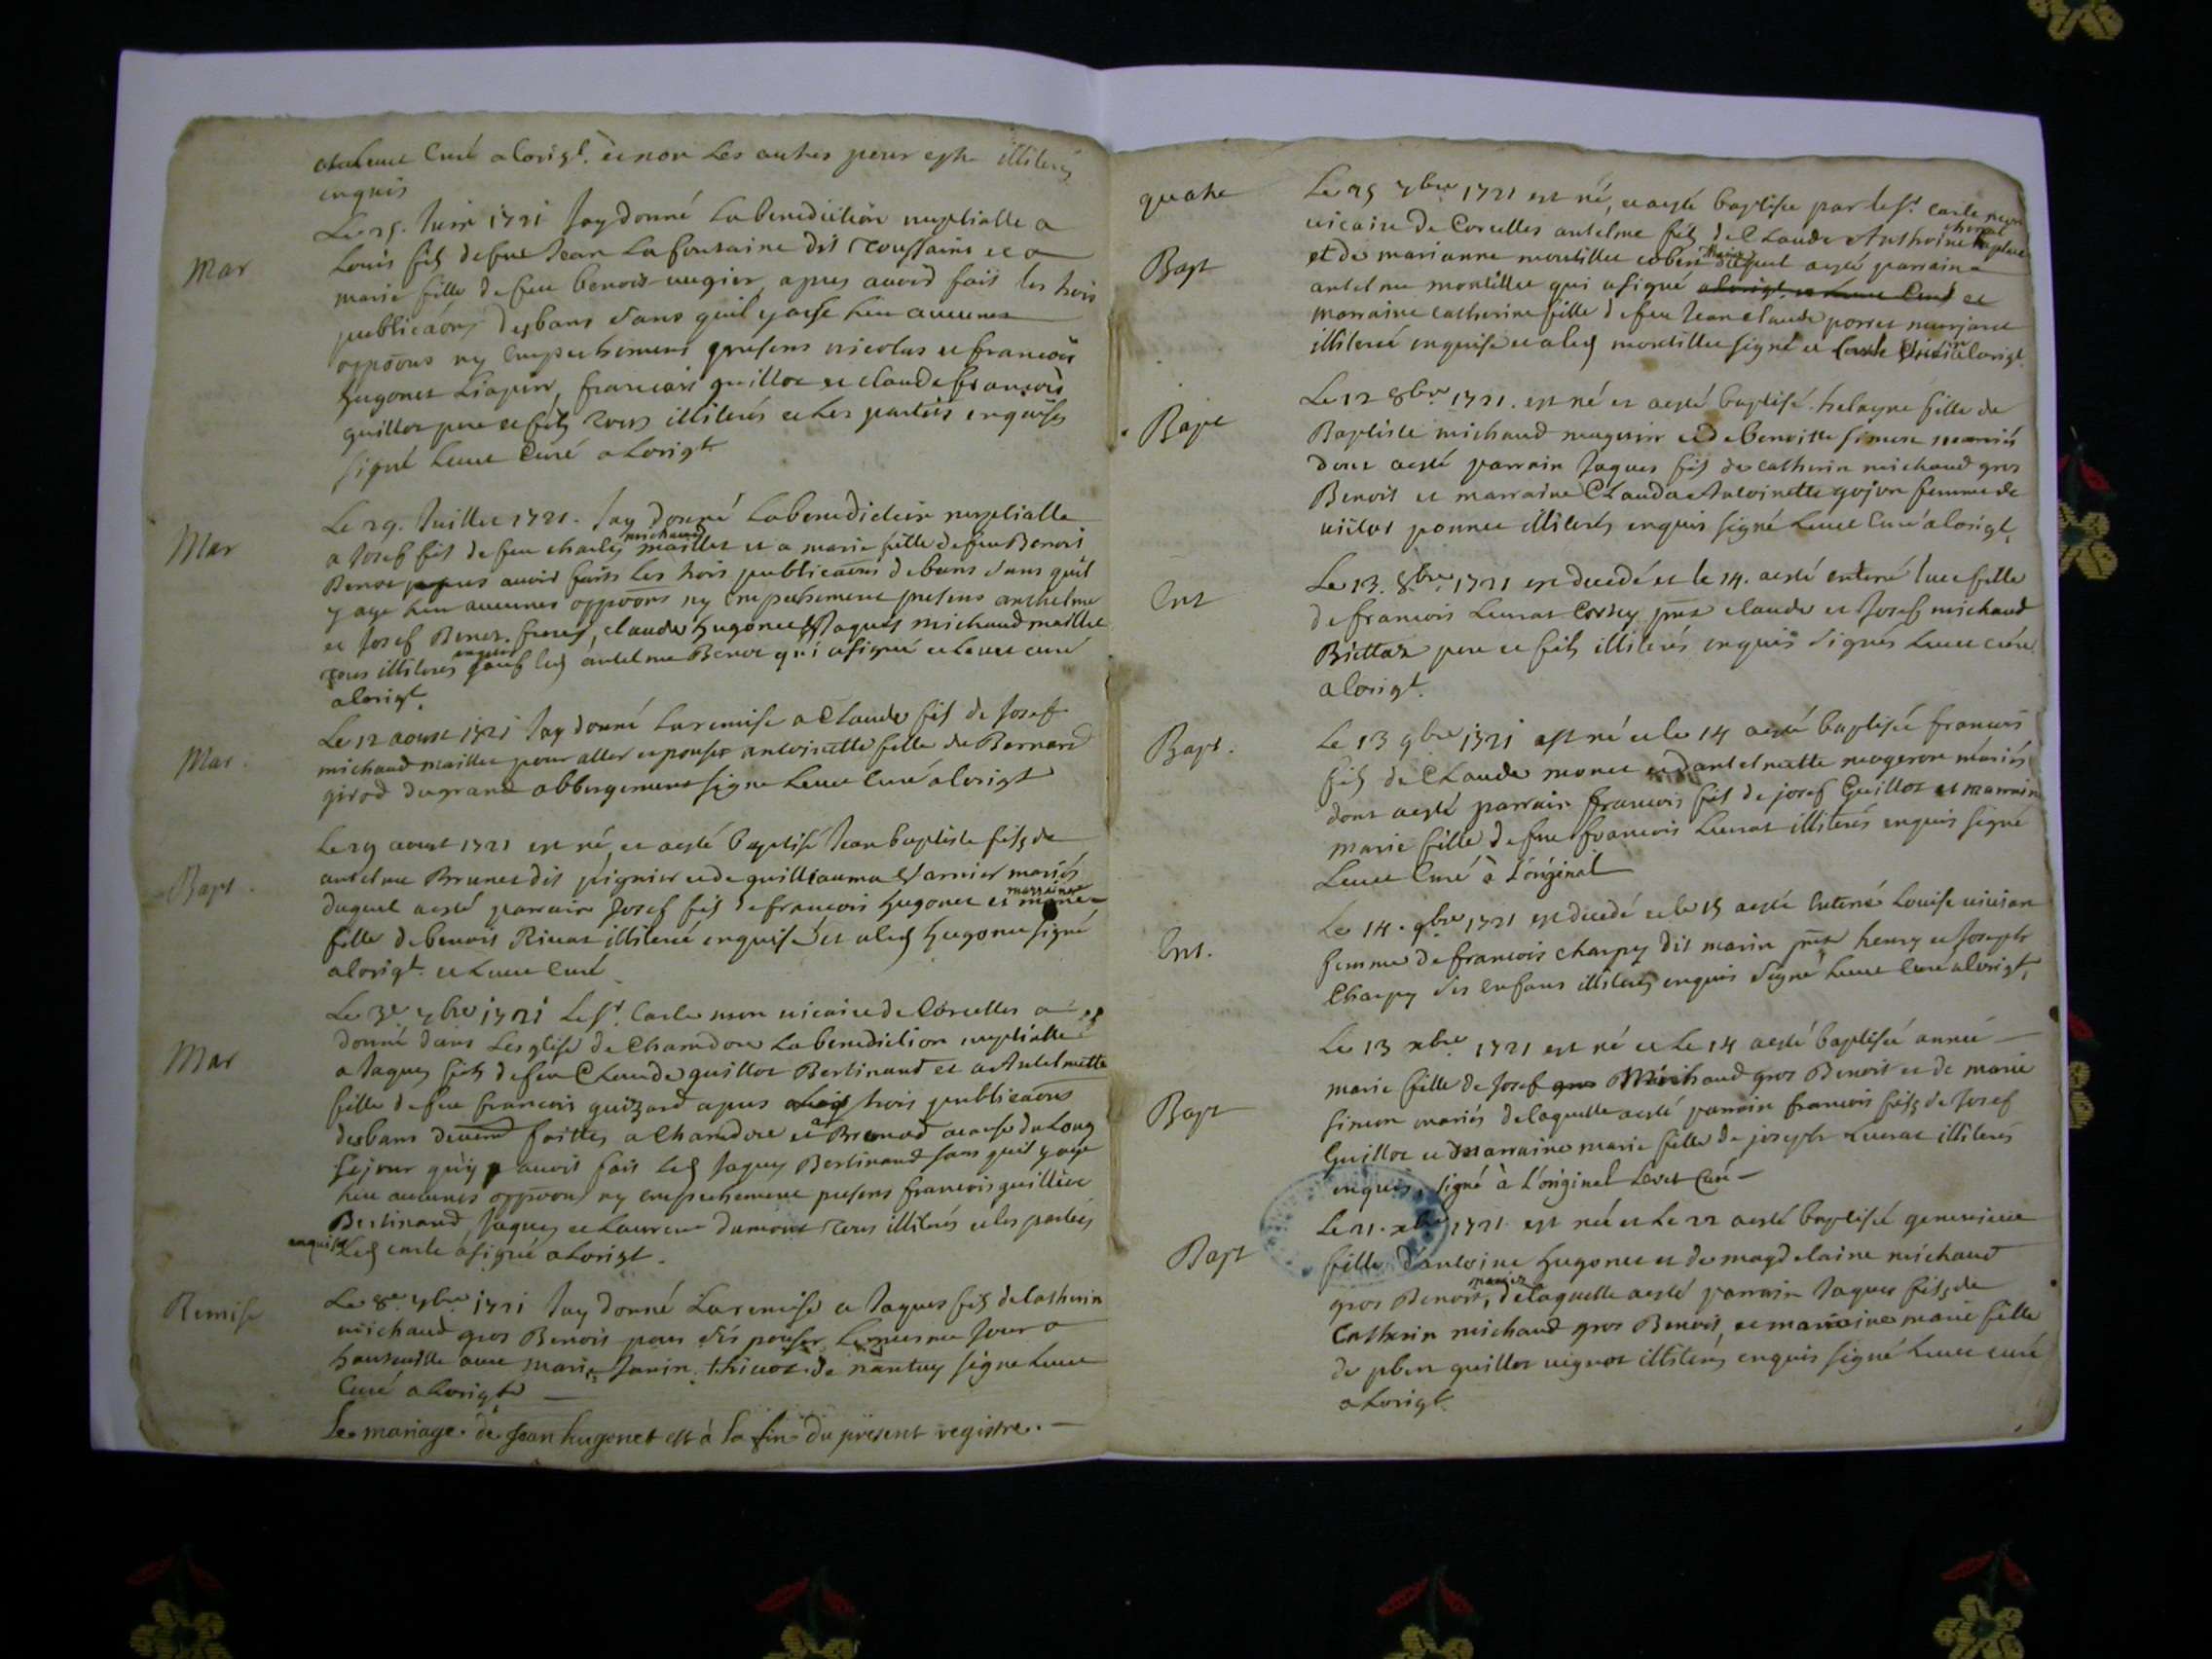 curé a lorigt. et non les autres pour estre illiterés
enquis
Mar
Le 25. Juin 1721 Jay donné la benediction nuptialle a
Louis fils de feu Jean La fontaine dit toussains et a
marie fille de feu benoit augier, apres avoir fait les trois
publicãons desbans sans quil y aye heu aucunes
oppõons ny empechement presens nicolas et francois
hugonet Liapin, francois guillot et claude francois
guillot pere et fils tous illiterés et les parties enquises
signé Levet Curé a Lorigt
Mar
Le 29. Juillet 1721. Jay donné La benediction nuptialle
michaud
a Josef fils de feu charles maillet et a marie fille de feu Benoit
Benoz apres avoir faits les trois publicãons debans sans quil
y aye heu aucunes oppõons ny empechement presens anthelme
et Josef Benoz freres, claude hugonet & Jaques michaud maillet
enquis
tous illiterés sauf led antelme Benoz qui a signé et Levet curé
a lorigt.
Mar.
Le 12 aoust 1721 Jay donné la remise a Claude fils de Josef
michaud maillet pour aller epouser antoinette fille de Bernard
girod du grand abbergement signe Levet Curé a lorigt
Bapt.
Le 29 aoust 1721 est né, et aesté baptisé Jean baptiste fils de
antelme Brunet dit pignier et de guilliauma Varnier mariés
marraine
duquel aesté parrain Josef fils de francois hugonet et
fille de benoit Rivat illiterée enquise et led hugonet signé
a lorigt. et Levet Curé
Mar
Le 3e 7bre 1721 Le Sr. Carle mon vicaire de Corcelles a
donné dans Lesglise de Chamdore La benediction nuptialle
a Jaques fils de feu Claude guillot Bertinand et a Antelmette
fille de feu francois guizard apres trois publicãons
desbans faittes a Chamdore et a Brenod acause du Long
sejour qu'y avoit fait led Jaques Bertinand sans quil y aye
heu aucunes oppõons ny empechement presens francois guilliot
Bertinand Jaques et Laurent dumont tous illiterés et les parties
enquises Led carle a signé a Lorigt.
Remise
Le 8e. 7bre 1721 Jay donné La remise a Jaques fils de Catherin
michaud gros Benoit pour epouser Le mesme Jour a
hauteville avec marie Janin. de nantuy signe Levet
Curé a Lorigt
Le mariage de Jean hugonet est à la fin du present registre.
quatre
Bapt
Le 25 7bre 1721 est né, et aesté baptisé par le Sr. carle mon
vicaire de Corcelles antelme fils de Claude Anthoine
et de marianne montillet duquel aesté parrain
antelme montillet qui a signé a lorigt. et Levet Curé et
marraine catherine fille de feu Jean claude
illiterée enquise et led montillet signé et a lorigt.
Bapt
Le 12 8bre. 1721. est né et aesté baptisé helayne fille de
Baptiste michaud magnin et de benoitte simon mariés
dont aesté parrain Jaques fils de catherin michaud gros
Benoit et marraine Clauda Antoinette gojon femme de
victor ponnet illiterés enquis signé Levet Curé a lorigt,
Ent
Le 13. 8bre. 1721 est decedé et le 14. aesté enterré luce fille
de francois Levrat Corsey pnts claude et Josef michaud
Biettaz pere et fils illiterés enquis signés Levet curé
a lorigt.
Bapt.
Le 13 9bre 1721 est né et le 14 aesté baptisé francois
fils de Claude monet et d'antelmette mogeron mariés
dont aesté parrain francois fils de josef Guillot et marraine
marie fille de feu francois Levrat illiterés enquis signé
Levet Curé à l'original
Ent.
Le 14. 9bre 1721 est decedé et le 15 aesté enterré Louise vivian
femme de francois charpy dit marin pnts henry et Joseph
Charpy ses enfans illiterés enquis signé Levet Curé a lorigt,
Bapt
Le 13 xbre. 1721 est né et Le 14 aesté baptisée anne
marie fille de Josef gros Michaud gros Benoit et de marie
simon mariés de laquelle aesté parrain francois fils de Josef
Guillot et marraine marie fille de joseph Levrat illiterés
enquis, signé à l'original Levet Curé
Bapt
Le 21. xbre 1721 est née et Le 22 aesté baptisée genevieve
fille d'antoine hugonet et de magdelaine michaud
mariez
gros Benoit, de laquelle aesté parrain Jaques fils de
Catherin michaud gros Benoit, et marraine marie fille
de guillot vugnot illiterés enquis signé Levet curé
a Lorigt.